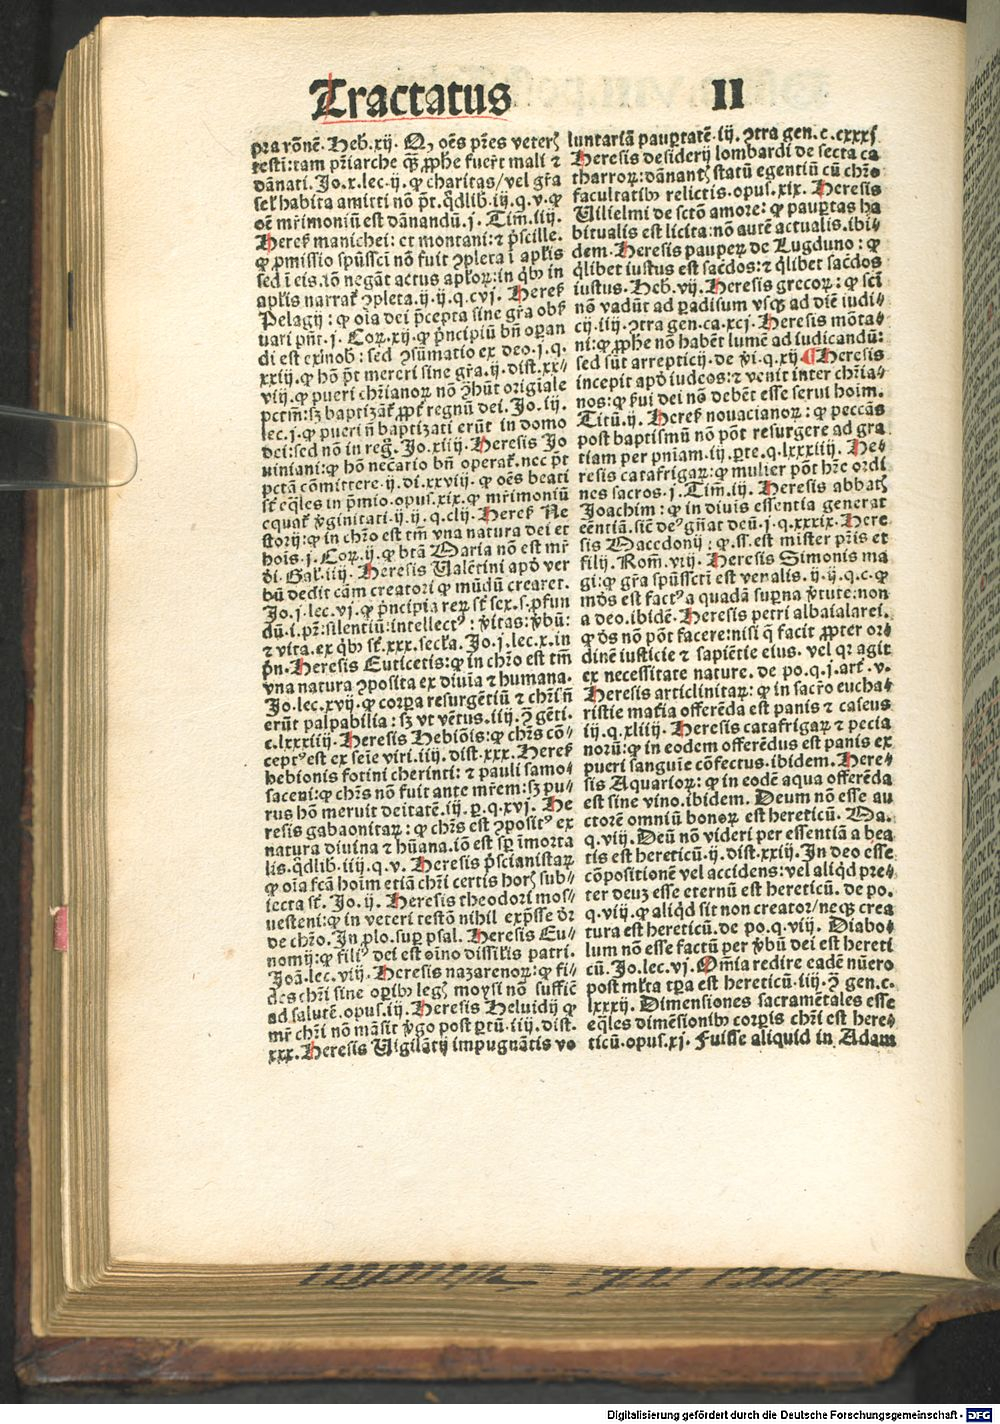 Tractatus II
pra rōnē. Heb. xij. Q, oēs pr̄es veterꝭ
testi: tam pr̄iarche qꝫ ꝓphe fuer̄t mali ⁊
dānati. Jo. x. lec. ij. ꝙ charitas/ vel gr̄a
sel̄ habita amitti nō pt̄. qdlib. iij. q. v. ꝙ
oē mr̄imoniū est dānandū. j. Tim̄. iiij.
Heref manichei: et montani: ⁊ p̄scille.
ꝙ ꝓmissio spūssci nō fuit ꝯpleta ī apl̄is
sed ī eis. iō negāt actus apl̄oꝝ: in qb᷒ in
apl̄is narrat̄ ꝯpleta. ij. ij. q. cvj. Heref
Pelagij: ꝙ oīa dei p̄cepta sine gr̄a obẜ
uari pn̄t. j. Coꝝ. xij. ꝙ p̄ncipiū bn̄ operan
di est ex nob̄: sed ꝯsūmatio ex deo. j. q.
xxiij. ꝙ hō pt̄ mereri sine gr̄a. ij. dist. xx⸗
viij. ꝙ pueri chr̄ianoꝝ nō ꝯhūt origiale
pctm̄: sꝫ baptizāt̄ ꝓpt̄ regnū dei. Jo. iij.
lec. j. ꝙ pueri n̄ baptizati erūt in domo
dei: sed nō in reg̅. Jo. xiiij. Heresis Jo
uiniani: ꝙ hō nec̄ario bn̄ operat̄. nec pt̄
pctā cōmittere. ij. di. xxviij. ꝙ oēs beati
st̄ eq̄les in p̄mio. opus. xix. ꝙ mr̄imoniū
equat̄ v̄ginitati. ij. ij. q. clij. Heref Ne
storij: ꝙ in chr̄o est tm̄ vna natura dei et
hois. j. Coꝝ. ij. ꝙ btā Maria nō est mr̄
di. Gal̄. iiij. Heresis Ualētini apd̄ ver
bū dedit cām creatori ꝙ mūdū crearet.
Jo. j. lec. vj. ꝙ p̄ncipia reꝝ st̄ sex. s. ꝓfun
dū. i. pr̄: silentiū: intellect᷒: v̄itas: v̄bū:
⁊ vita. ex qb᷒ st̄. xxx. secl̄a. Jo. j. lec. x. in
pn̄. Heresis Euticetis: ꝙ in chr̄o est tm̄
vna natura ꝯposita ex diuīa ⁊ humana.
Jo. lec. xvij. ꝙ corpa resurgētiū ⁊ chr̄i n̄
erūt palpabilia: sꝫ vt vētus. iiij. ꝯ gēti.
c. lxxxiiij. Heresis Hebiōis: ꝙ chr̄s cō⸗
cept᷒ est ex seīe viri. iiij. dist. xxx. Heref
hebionis fotini cherinti: ⁊ pauli samo⸗
saceni: ꝙ chr̄s nō fuit ante mr̄em: sꝫ pu⸗
rus hō meruit deitatē. iij. ꝑ. q. xvj. He
resis gabaonitaꝝ: ꝙ chr̄s est ꝯposit᷒ ex
natura diuina ⁊ hūana. iō est sp̄ īmorta
lis. qdlib. iiij. q. v. Heresis p̄scianistaꝝ
ꝙ oīa fcā hoīm etiā chr̄i certis horꝭ sub⸗
iecta st̄. Jo. ij. Heresis theodori mos⸗
uesteni: ꝙ in veteri testō nihil exp̄sse dr̄
de chr̄o. In plo. suꝑ psal. Heresis Eu⸗
nomij: ꝙ fili᷒ dei est oīno dissilis patri.
Joā. lec. viij. Heresis nazarenoꝝ: ꝙ fi⸗
des chr̄i sine oꝑib᷒ legꝭ moysi nō suffic̄
ad salutē. opus. iij. Heresis Heluidij ꝙ
mr̄ chr̄i nō māsit v̄go post ꝑtū. iiij. dist.
xxx. Heresis Uigilātij impugnātis vo
luntariā pauꝑtatē. iij. ꝯtra gen. c. cxxxj
Heresis desiderij lombardi de secta ca
tharroꝝ: dānantꝭ statū egentiū cū chr̄o
facultatib᷒ relictis. opus. xix. Heresis
Uilielmi de sctō amore: ꝙ pauꝑtas ha
bitualis est licita: nō autē actualis. ibi⸗
dem. Heresis pauꝑeꝝ de Lugduno: ꝙ
qlibet iustus est sac̄dos: ⁊ qlibet sac̄dos
iustus. Heb. vij. Heresis grecoꝝ: ꝙ sc̄i
nō vadūt ad ꝑadisum vsqꝫ ad diē iudi⸗
cij. iiij. ꝯtra gen. ca. xcj. Heresis mōta⸗
ni: ꝙ ꝓphe nō habēt lumē ad iudicandū:
sed sūt arrepticij. de v̄i. q. xij. ¶Heresis
incepit apd̄ iudeos: ⁊ venit inter chr̄ia⸗
nos: ꝙ ẜui dei nō debēt esse serui hoīm.
Titū. ij. Heref nouacianoꝝ: ꝙ peccās
post baptismū nō pōt resurgere ad gra
tiam per pniam. iij. ꝑte. q. lxxxiiij. He⸗
resis catafrigaꝝ: ꝙ mulier pōt hr̄e ordi
nes sacros. j. Tim̄. iij. Heresis abbatꝭ
Joachim: ꝙ in diuis essentia generat
eēntiā. sic̄ de᷒ gn̄at deū. j. q. xxxix. Here
sis Macedonij: ꝙ. ss. est mister pr̄is et
filij. Rom̄. viij. Heresis Simonis ma
gi: ꝙ gr̄a spūsscti est venalis. ij. ij. q. c. ꝙ
mōs est fact᷒ a quadā suꝑna v̄tute: non
a deo. ibidē. Heresis petri albaialarei.
ꝙ ds̄ nō pōt facere: nisi q̄ facit ꝓpter or⸗
dinē iusticie ⁊ sapiētie eius. vel qꝛ agit
ex necessitate nature. de po. q. j. art̄. v.
Heresis articlinitaꝝ: ꝙ in sacr̄o eucha⸗
ristie mat̄ia offerēda est panis ⁊ caseus
iij. q. xliiij. Heresis catafrigaꝝ ⁊ pecia
noꝝū: ꝙ in eodem offerēdus est panis ex
pueri sanguīe cōfectus. ibidem. Here⸗
sis Aquarioꝝ: ꝙ in eodē aqua offerēda
est sine vino. ibidem. Deum nō esse au
ctorē omniū bonoꝝ est hereticū. Ma.
q. viij. Deū nō videri per essentiā a bea
tis est hereticū. ij. dist. xxiij. In deo esse
cōpositionē vel accidens: vel aliqd pre⸗
ter deuꝫ esse eternū est hereticū. de po.
q. viij. ꝙ aliqd sit non creator/ neqꝫ crea
tura est hereticū. de po. q. viij. Diabo⸗
lum nō esse factū per v̄bū dei est hereti
cū. Jo. lec. vj. Om̄ia redire eadē nūero
post ml̄ta tꝑa est hereticū. iiij. ꝯ gen. c.
lxxxij. Dimensiones sacramētales esse
eq̄les dimēsionib᷒ corꝑis chr̄i est here⸗
ticū. opus. xj. Fuisse aliquid in Adam
Digitalisierung gefördert durch die Deutsche Forschungsgemeinschaft - DFG